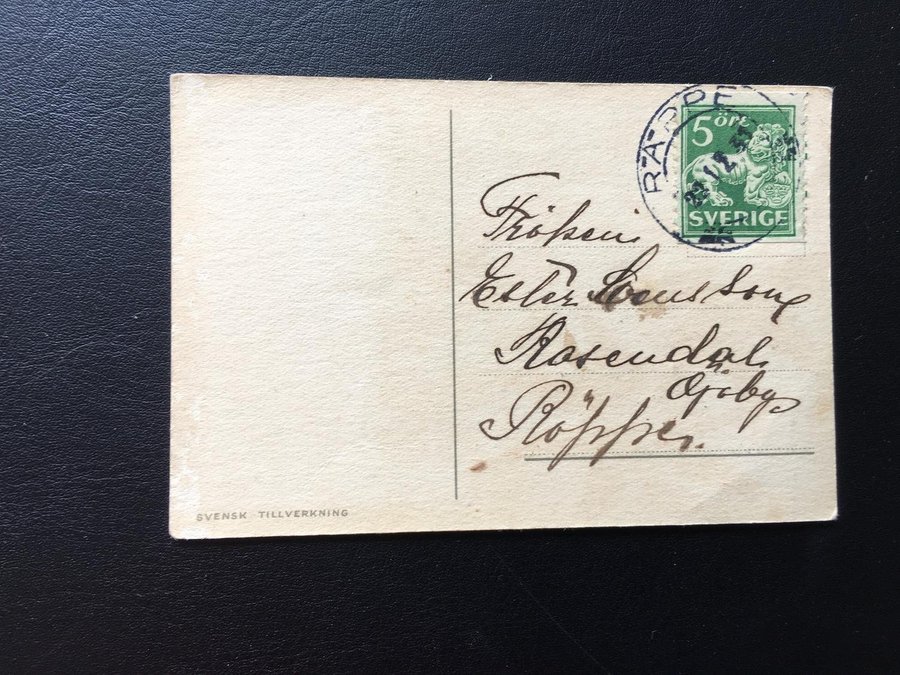 RÄPPE
5 ÖRE
SVERIGE
Fröken
Ester
Rosendal
Öjaby
Räppe.
SVENSK TILLVERKNING